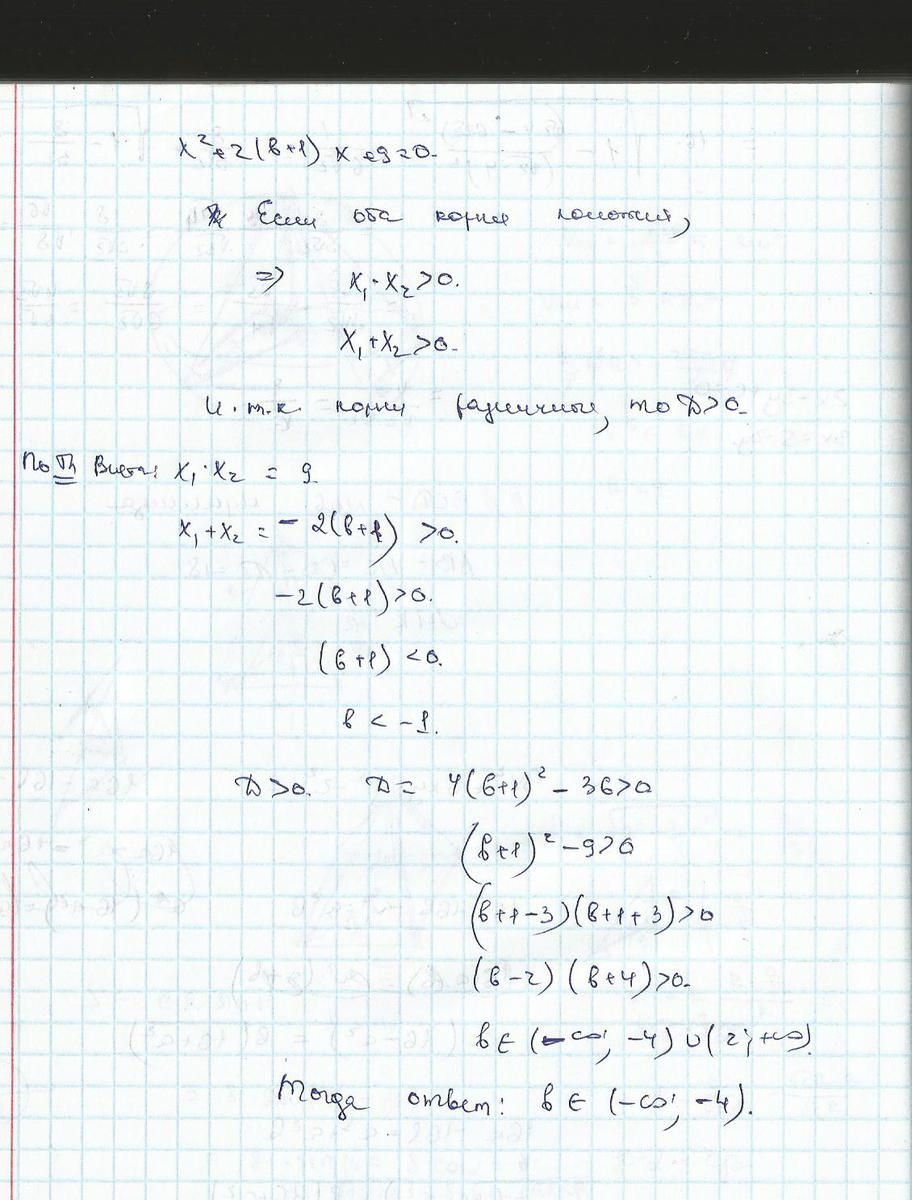 x² + 2(в+1) x + 9 = 0.
Если оба корня положит,
=> x₁·x₂ > 0.
x₁+x₂ > 0.
И т.к. корни различные, то D>0.
По Th Виета: x₁·x₂ = 9
x₁+x₂ = - 2(в+1) > 0.
-2(в+1) > 0.
(в+1) < 0.
в < -1.
D>0. D = 4(в+1)² - 36>0
(в+1)² - 9>0
(в+1-3)(в+1+3)>0
(в-2) (в+4)>0.
в ∈ (-∞; -4) ∪ (2; +∞)
Тогда ответ: в ∈ (-∞; -4).